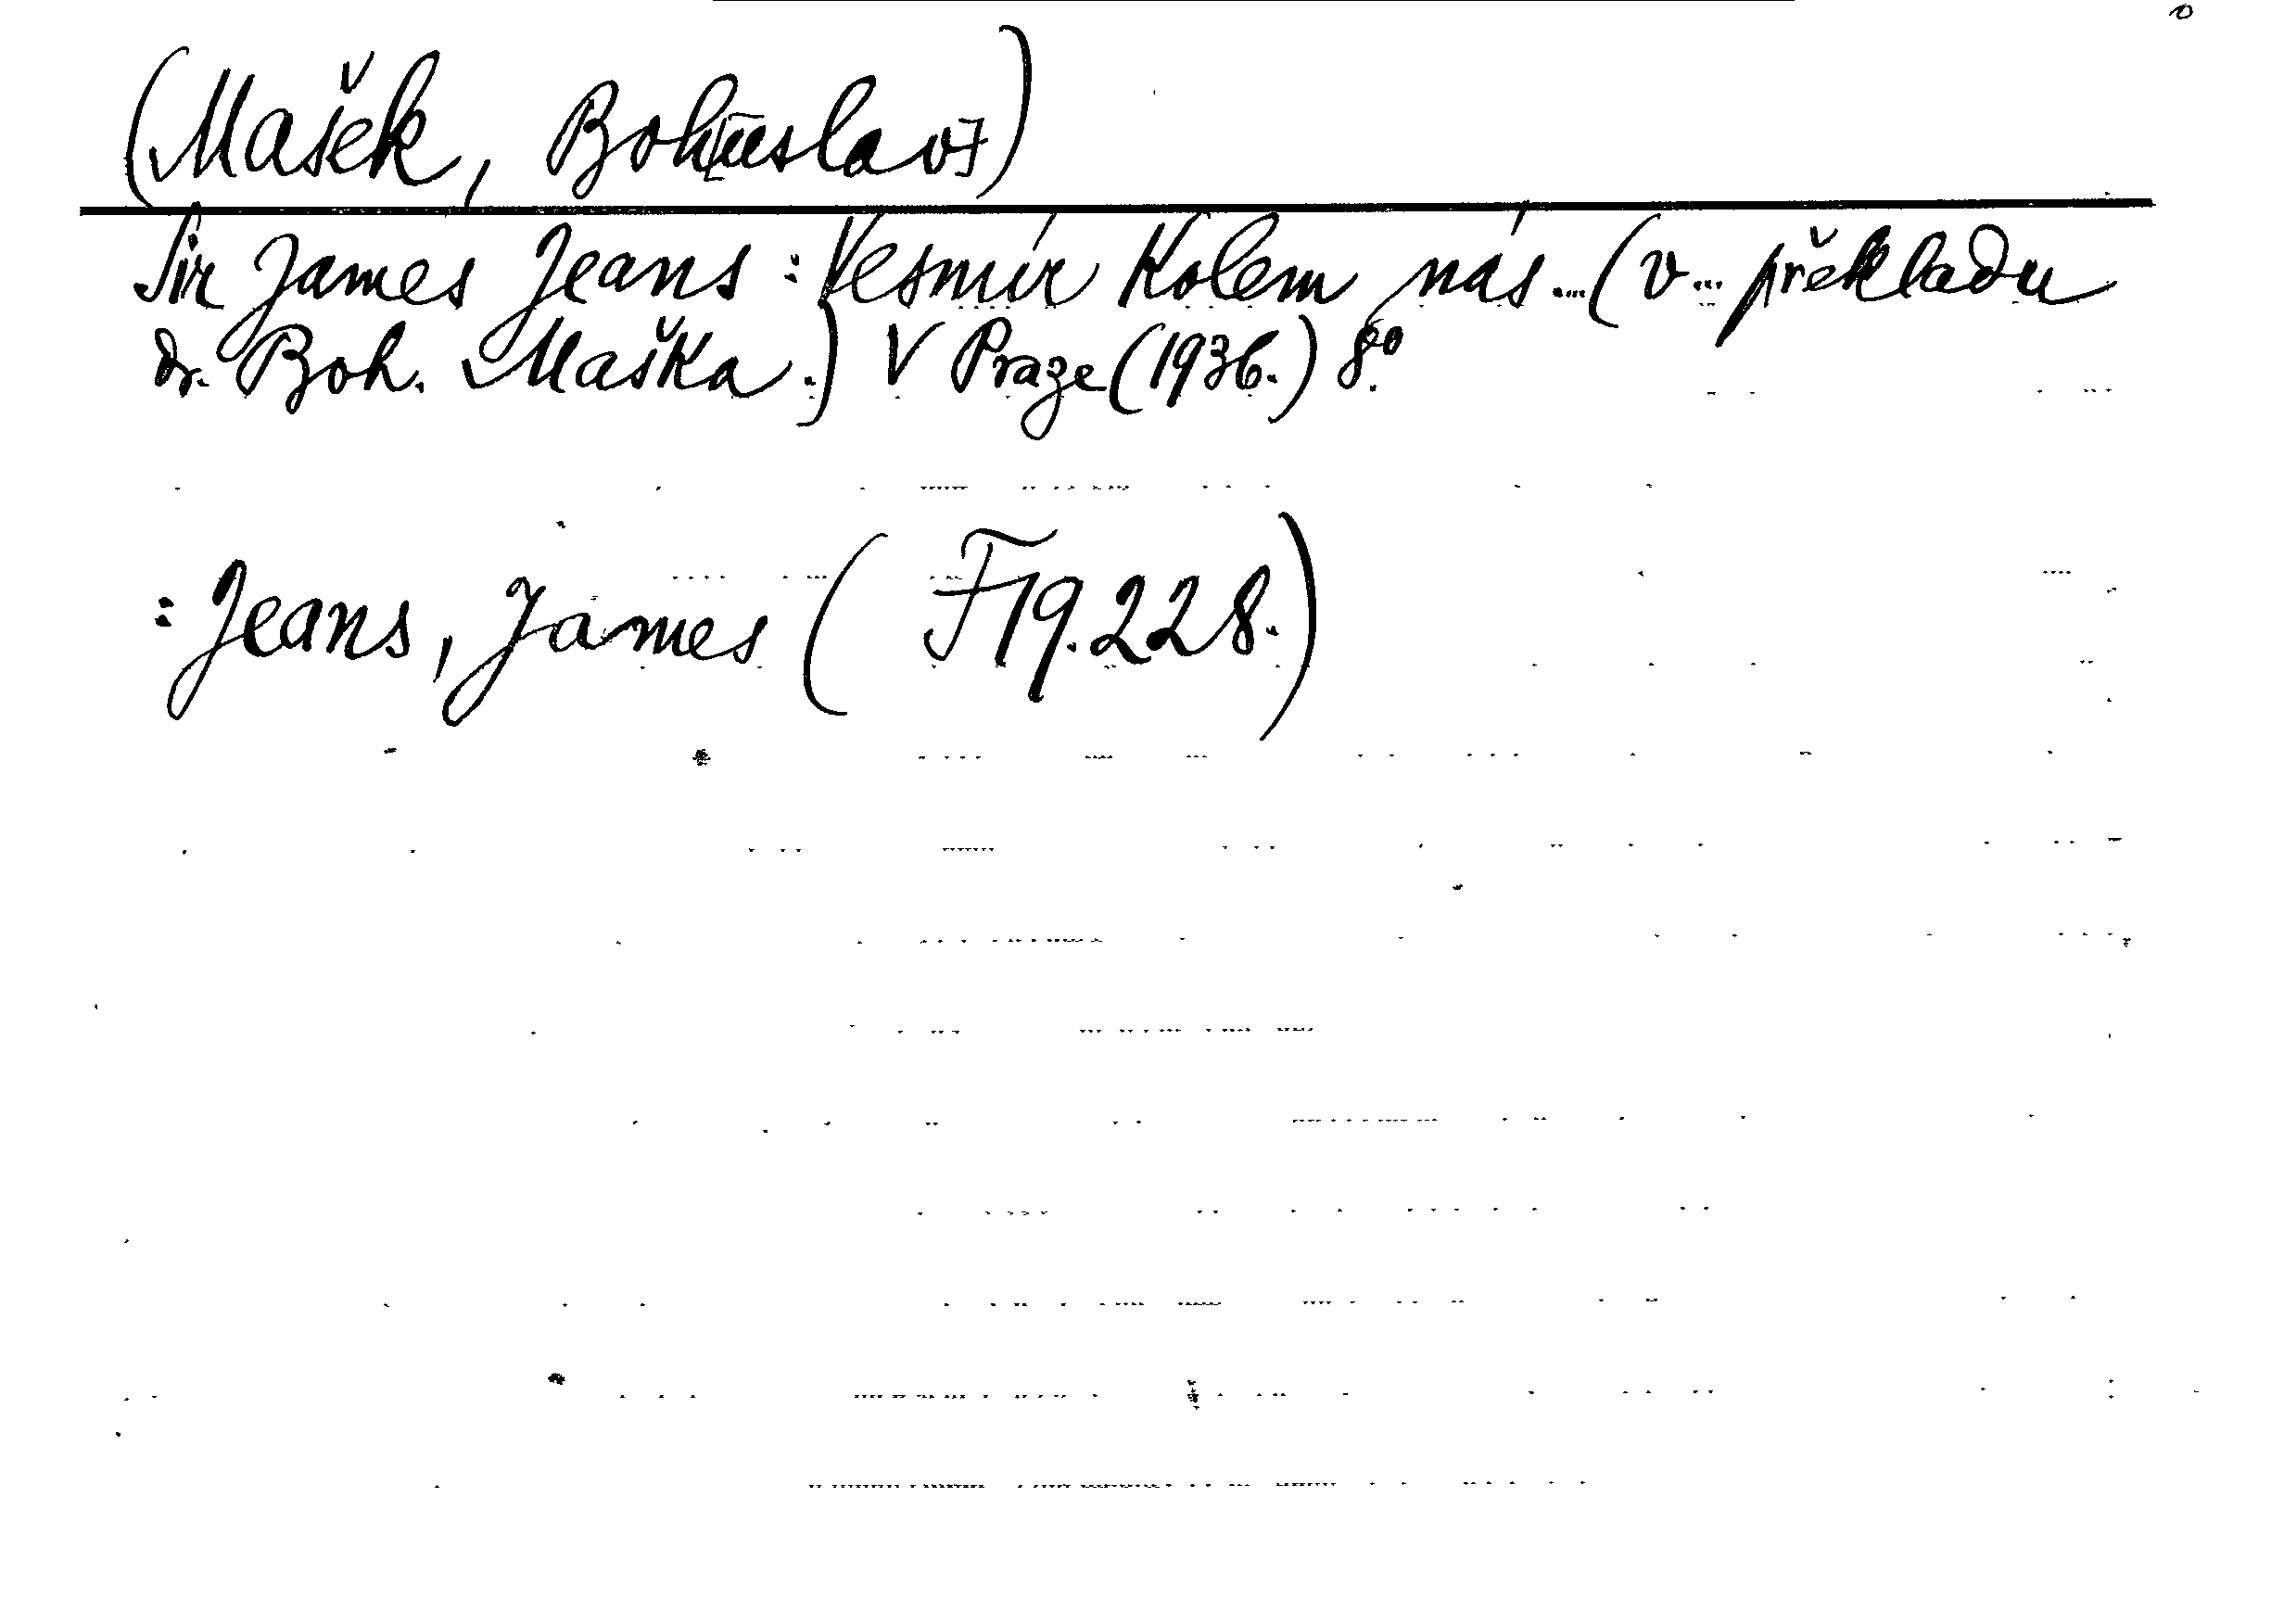 (Mašek, Boh[uslav])
Sir James Jeans: Vesmír kolem nás...(v... překladu
dr. Boh. Maška.) V Praze (1936.) 8.º
: Jeans, James ( F 19.228.)